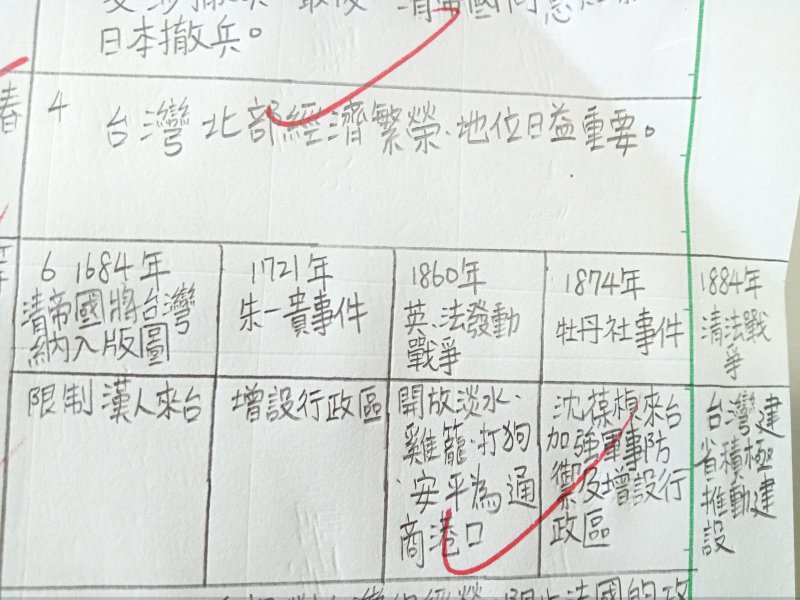 日本撤兵。
春
4
台灣北部經濟繁榮、地位日益重要。
6 1684年
清帝國將台灣
納入版圖
1721年
朱一貴事件
1860年
英、法發動
戰爭
1874年
牡丹社事件
1884年
清法戰
爭
限制漢人來台
增設行政區
開放淡水、
雞籠、打狗
、安平為通
商港口
沈葆楨來台
加強軍事防
禦及增設行
政區
台灣建
省積極
推動建
設